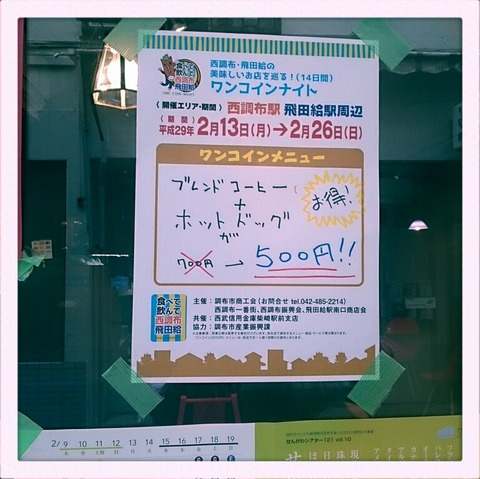 食べて
飲んで
西調布
飛田給
ONE COIN NIGHT
西調布・飛田給の
美味しいお店を巡る!(14日間)
ワンコインナイト
〈 開催エリア・期間 〉 西調布駅 飛田給駅周辺
〈 期間 〉
平成29年 2月13日(月)→2月26日(日)
ワンコインメニュー
ブレンドコーヒー
+
ホットドッグ
が
お得!
700円 → 500円!!
食べて
飲んで
西調布
飛田給
主催:調布市商工会(お問合せ tel.042-485-2214)
西調布一番街、西調布振興会、飛田給駅南口商店会
共催:西武信用金庫柴崎駅前支店
協力:調布市産業振興課
2/9 10 11 12 13 14 15 16 17 18 19
せんがわシアター121 vol.10